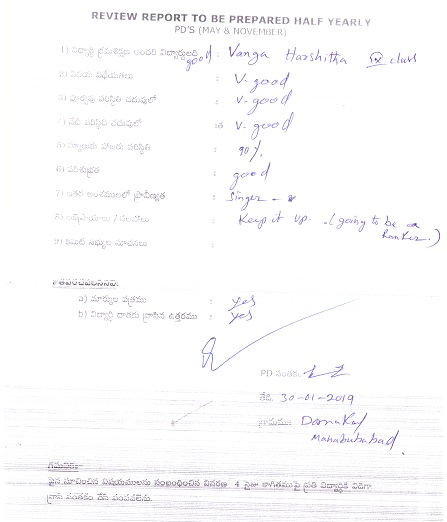 REVIEW REPORT TO BE PREPARED HALF YEARLY
PD'S (MAY & NOVEMBER)
1) విద్యార్థి క్రమశిక్షణ అందరి విద్యార్థులలో good : Vanga Harshitha class
2) వినయ విధేయతలు : V-good
3) పూర్వపు పరిస్థితి చదువులో : V-good
4) నేటి పరిస్థితి చదువులో : V-good
5) స్కూలుకు హాజరు పరిస్థితి : 90%
6) పరిశుభ్రత : good
7) ఇతర అంశములలో ప్రావీణ్యత : Singer
8) అభిప్రాయాలు / సలహాలు : Keep it up. (going to be a Ranker.)
9) కమిటీ సభ్యుల సూచనలు :
జతపరచవలసినవి:
a) మార్కుల పత్రము : yes
b) విద్యార్థి దాతకు వ్రాసిన ఉత్తరము : yes
PD సంతకం
తేది. 30-01-2019
గ్రామము: Dornakal
Mahabubabad.
గమనిక:
పైన సూచించిన విషయములను సంబంధించిన వివరణ 4 సైజు కాగితముపై ప్రతి విద్యార్థికి విడిగా
వ్రాసి సంతకం చేసి పంపవలెను.